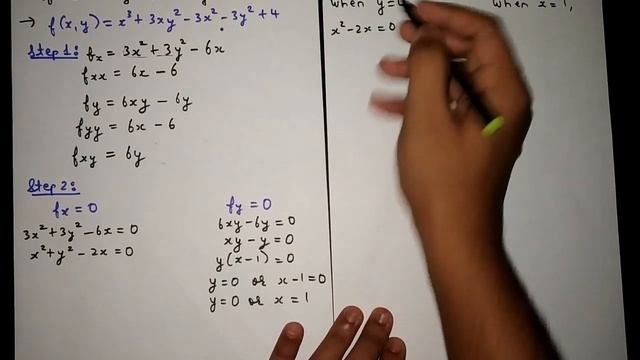 → f(x,y) = x³ + 3xy² - 3x² - 3y² + 4
Step 1: fx = 3x² + 3y² - 6x
fxx = 6x - 6
fy = 6xy - 6y
fyy = 6x - 6
fxy = 6y
Step 2:
fx = 0
3x² + 3y² - 6x = 0
x² + y² - 2x = 0
fy = 0
6xy - 6y = 0
xy - y = 0
y(x - 1) = 0
y = 0 or x - 1 = 0
y = 0 or x = 1
When y =
x² - 2x = 0
When x = 1,